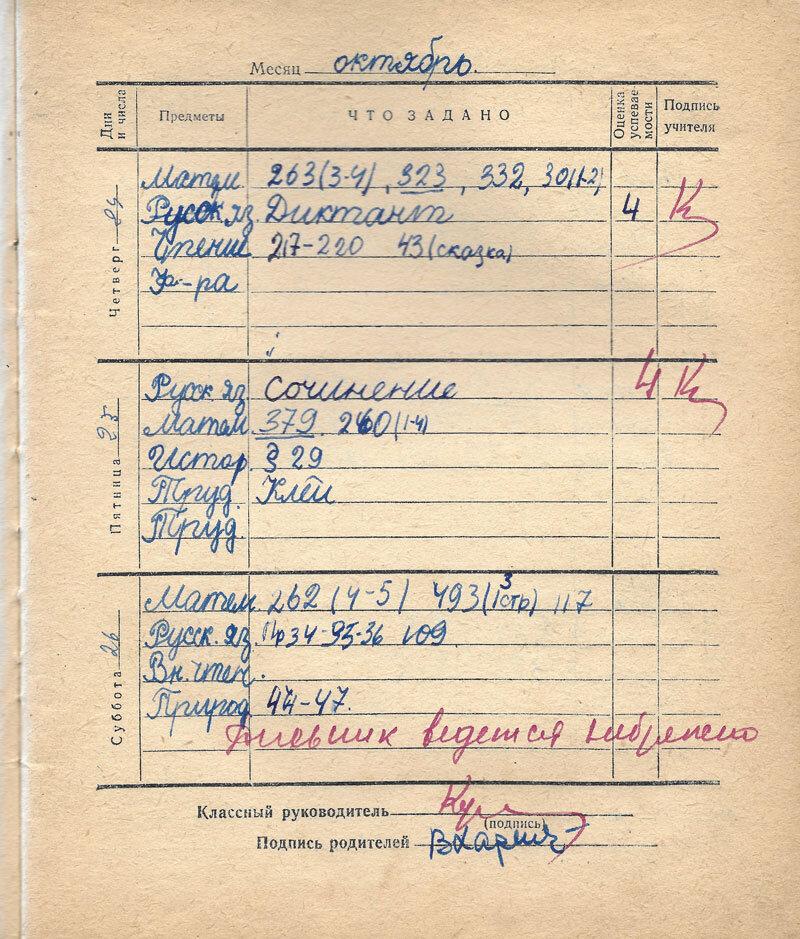 Месяц октябрь.
Дни и числа Предметы ЧТО ЗАДАНО Оценка успевае-мости Подпись учителя
Четверг 24
Матем 263(3-4), 323, 332, 30(1-2)
Русск яз. Диктант 4 К
Чтение 217-220 43(сказка)
Ф-ра
Пятница 25
Русск яз. Сочинение 4 К
Матем. 379. 260(1-4)
Истор. § 29
Труд. Клей
Труд.
Суббота 26
Матем. 262 (4-5) 493(3 1стр) 117
Русск. яз. Пр34-35-36 109
Вн. чтен.
Природ. 44-47.
Дневник ведется небрежно
Классный руководитель
(подпись)
Подпись родителей